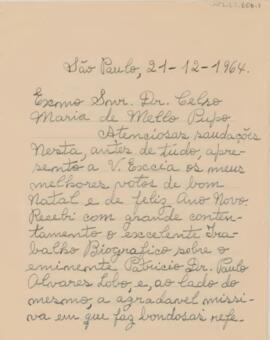 São Paulo, 21-12-1964.
Exmo Snr. Dr. Celso
Maria de Mello Pupo
Atenciosas saudações
Nesta, antes de tudo, apre-
sento a V. Excia os meus
melhores votos de bom
Natal e de feliz Ano Novo
Recebi com grande conten-
tamento o excelente Tra-
balho Biografico sobre o
eminente Patricio Dr. Paulo
Alvares Lobo, e, ao lado do
mesmo, a agradavel missi-
va em que faz bondosas refe-